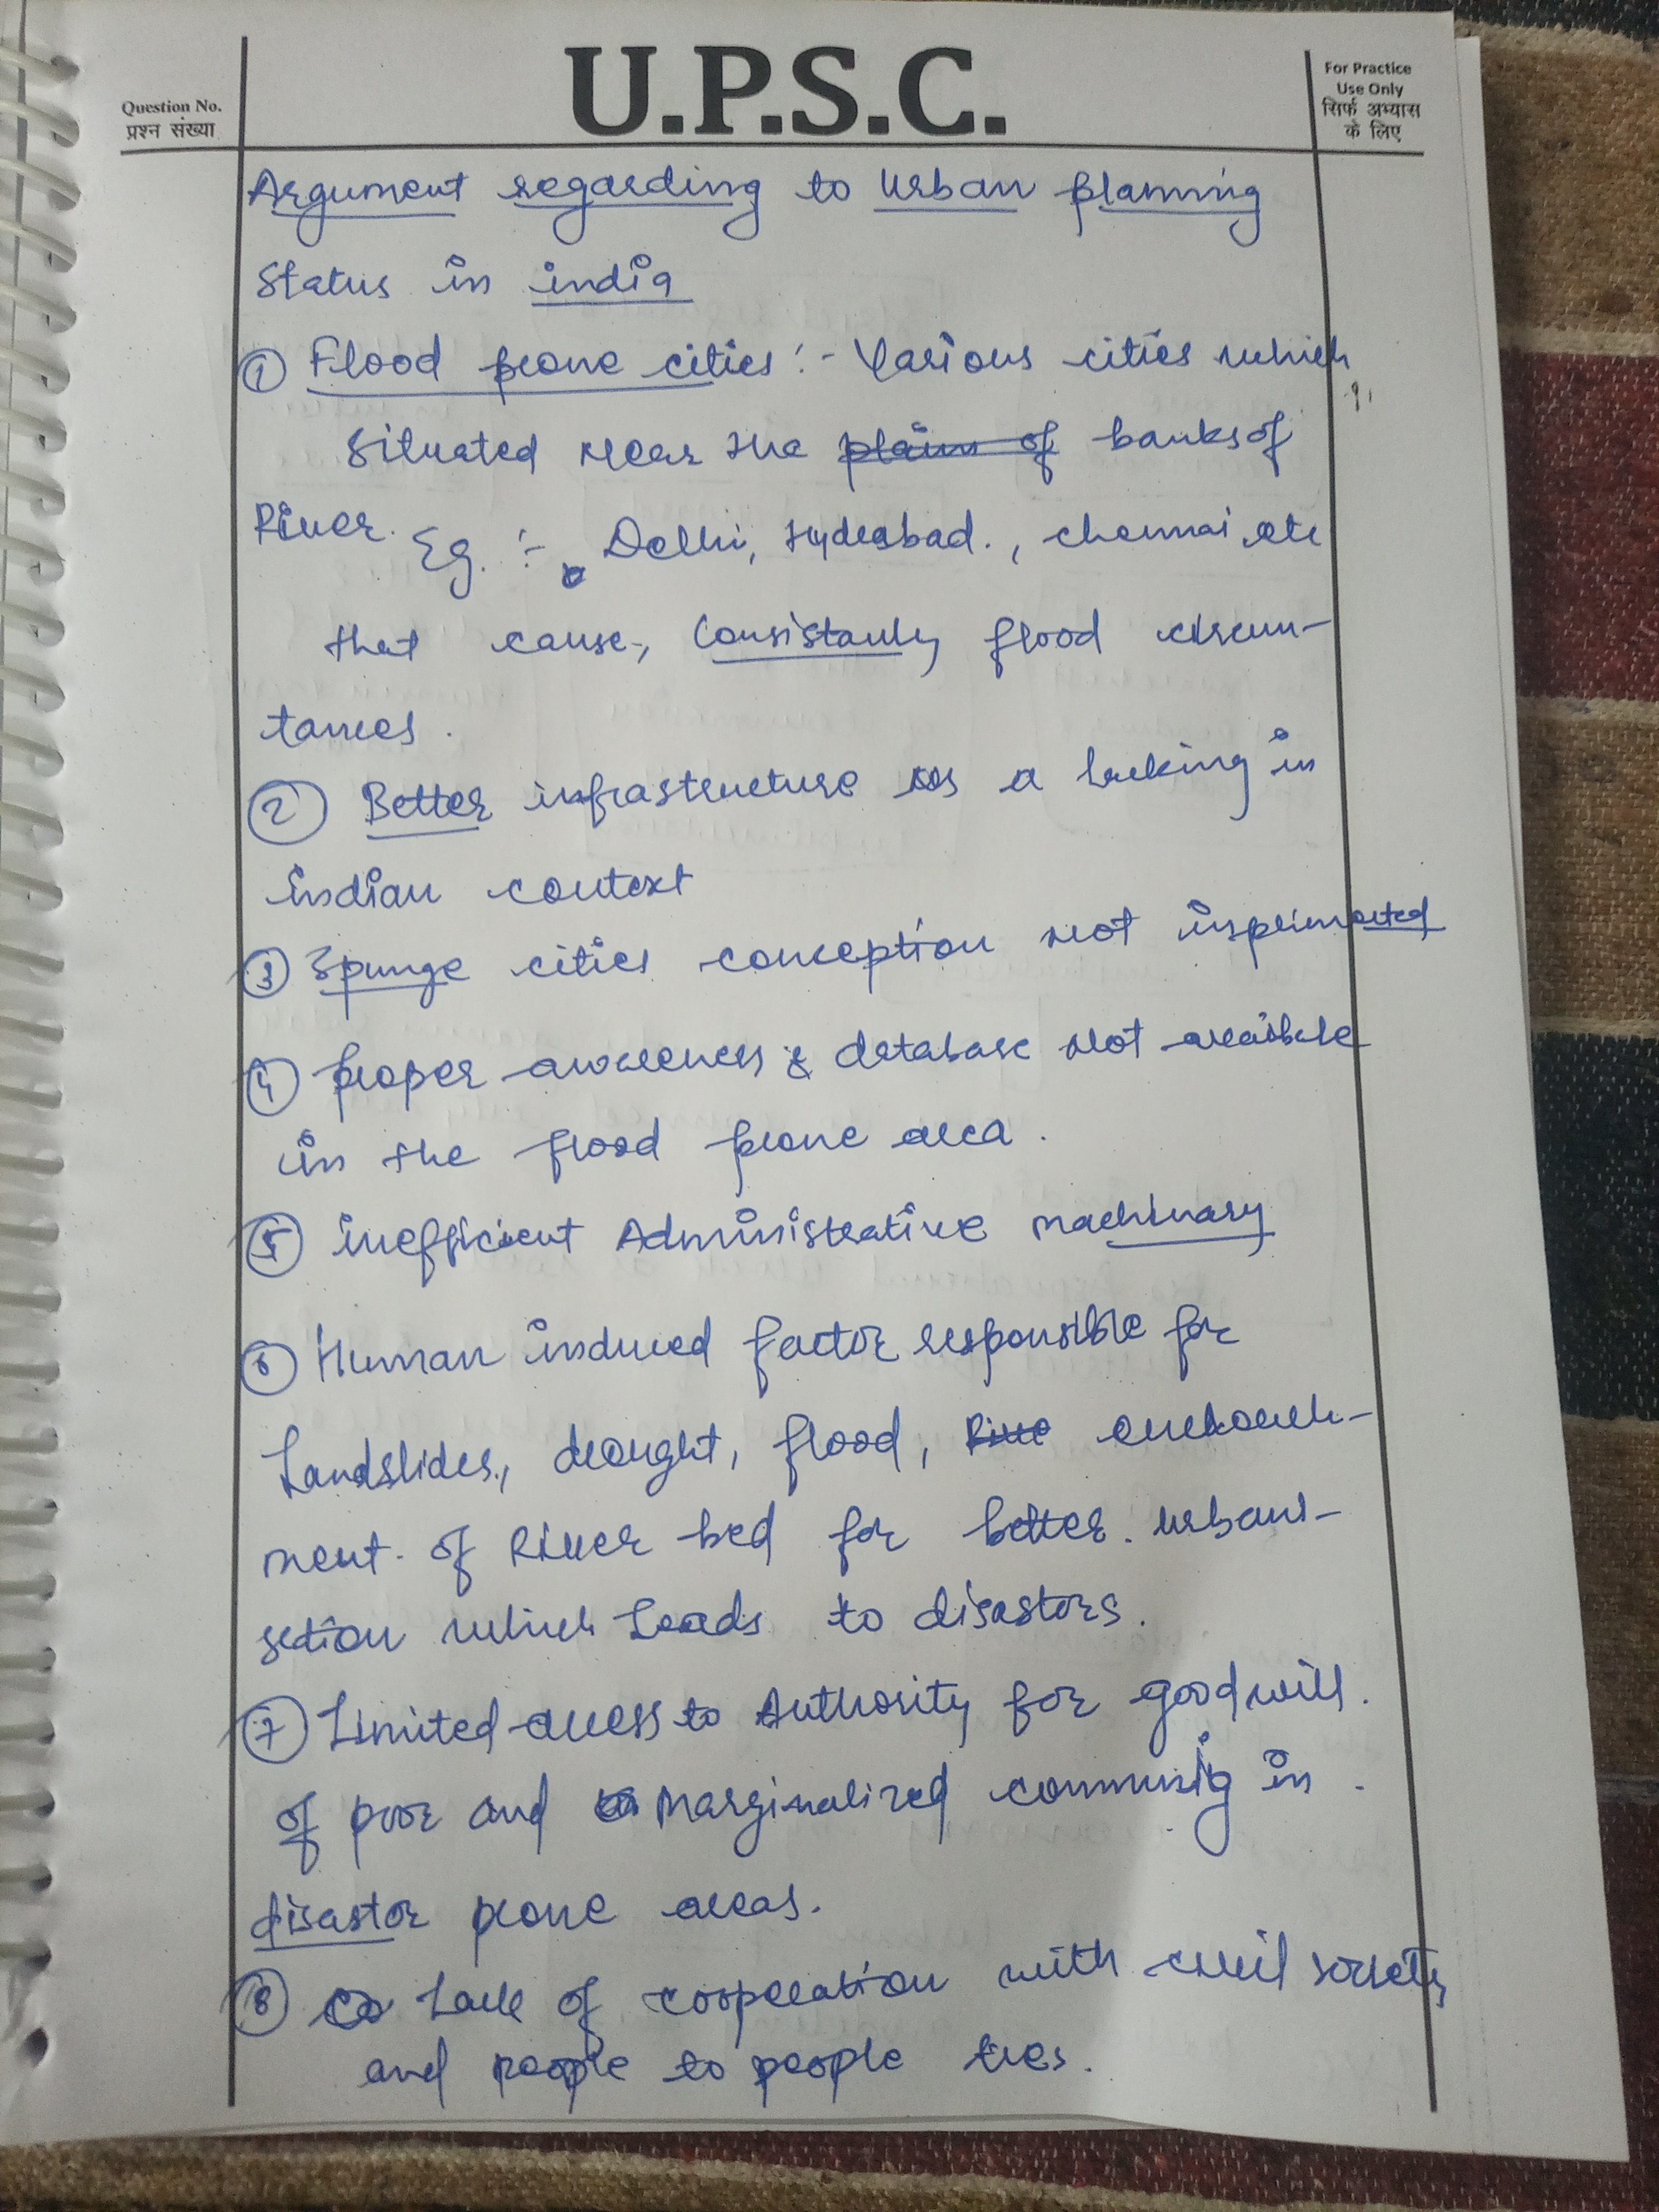 Question No.
प्रश्न संख्या
U.P.S.C.
For Practice
Use Only
सिर्फ अभ्यास
के लिए
Argument regarding to Urban planning
Status in india
① Flood prone cities :- Various cities which
situated near the plain of banks of
River. Eg. :- Delhi, Hyderabad., chennai, etc
that cause, Consistanly flood circum-
tances.
② Better infrastructure is a lacking in
indian context
③ Spunge cities conception not
④ proper awareness & database not
in the flood prone area.
⑤ inefficient Administrative machinary
⑥ Human induced factor responsible for
Landslides, drought, flood,
ment of River bed for better urbani-
sation which Leads to disastors.
⑦ Limited access to Authority for goodwill.
of poor and marginalized in
disastor prone areas.
⑧ Lack of cooperation with civil society
and people to people ties.